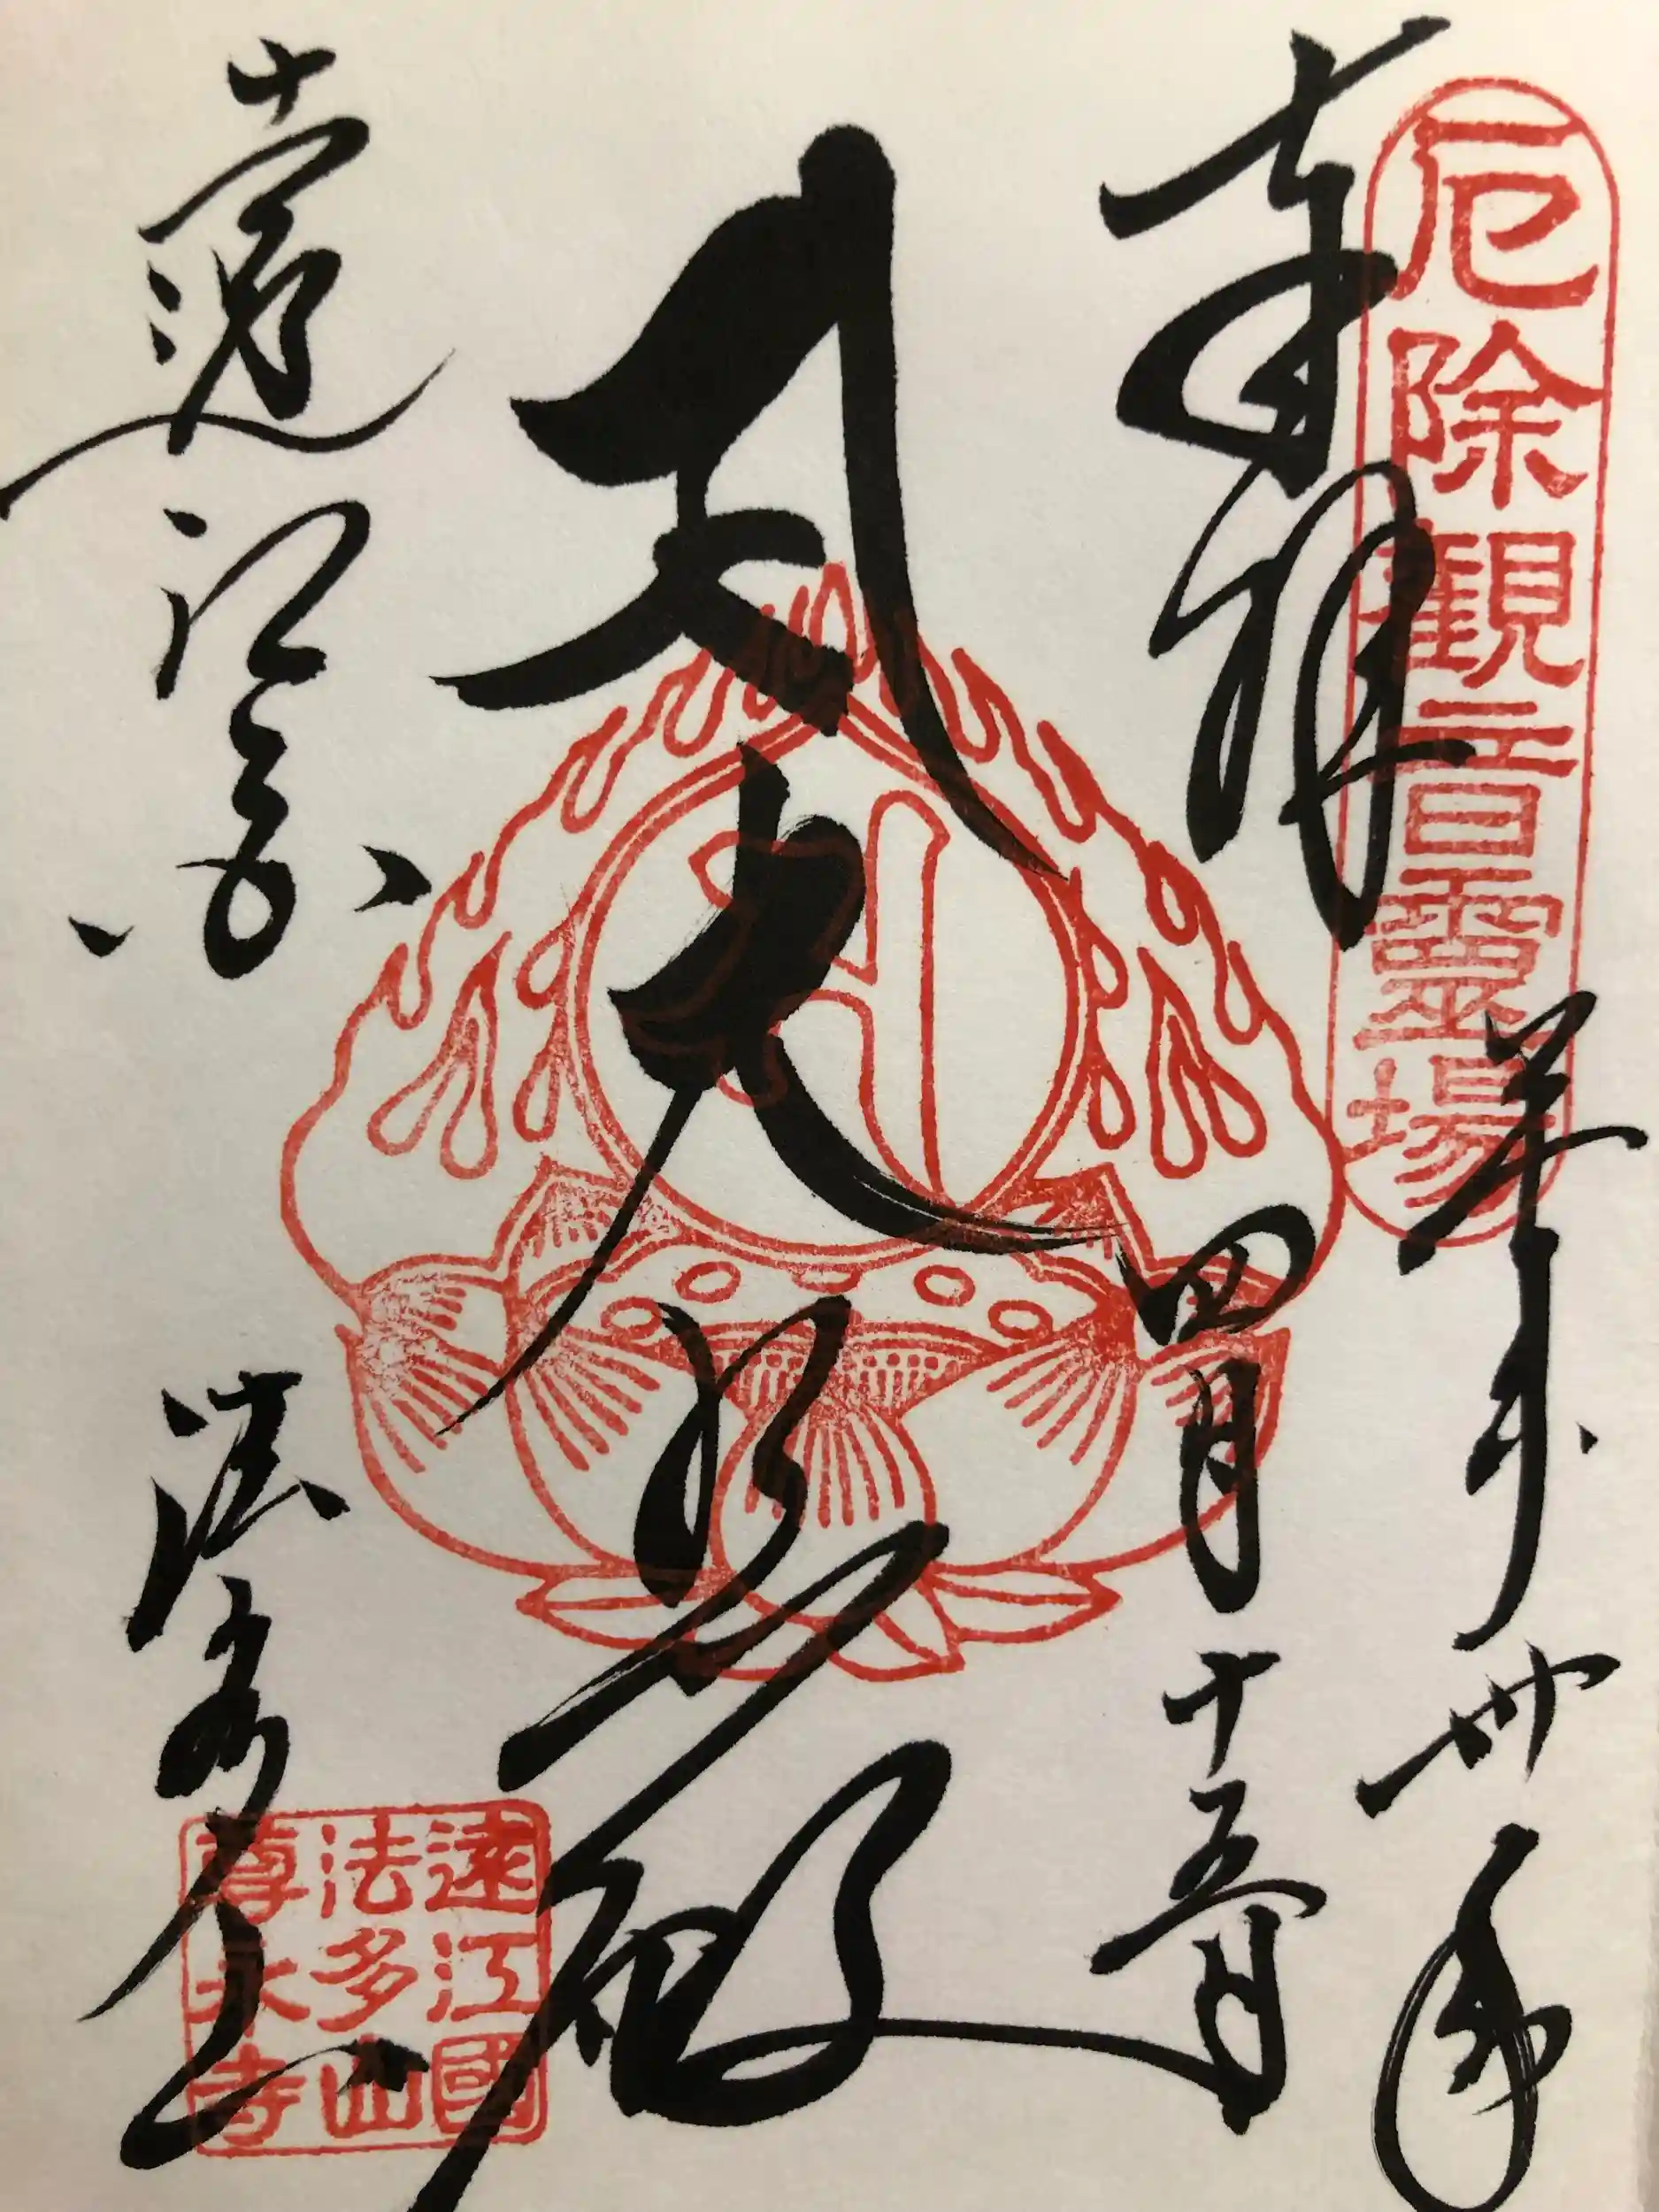 厄除観音霊場
奉拝
平成卅一年
四月十五日
大悲殿
遠江
法多山
遠江國
法多山
尊永寺